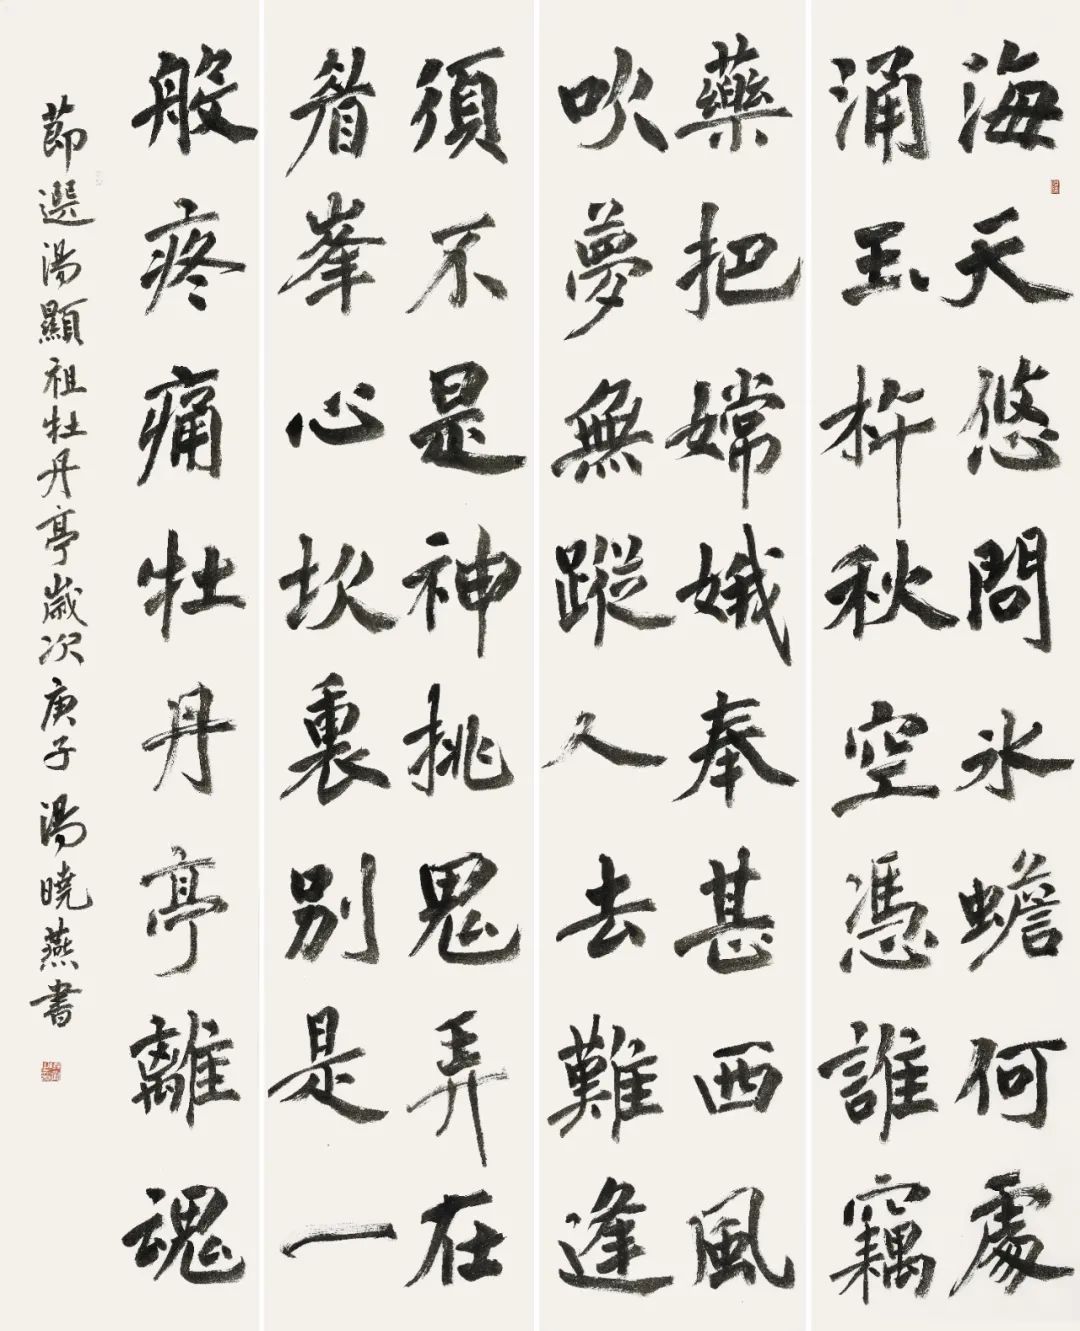 海天悠問氷蟾何處
涌玉杵秋空憑誰竊
藥把嫦娥奉甚西風
吹夢無蹤人去難逢
須不是神挑鬼弄在
眉峯心坎裏別是一
般疼痛牡丹亭離魂
節選湯顯祖牡丹亭歲次庚子湯曉燕書